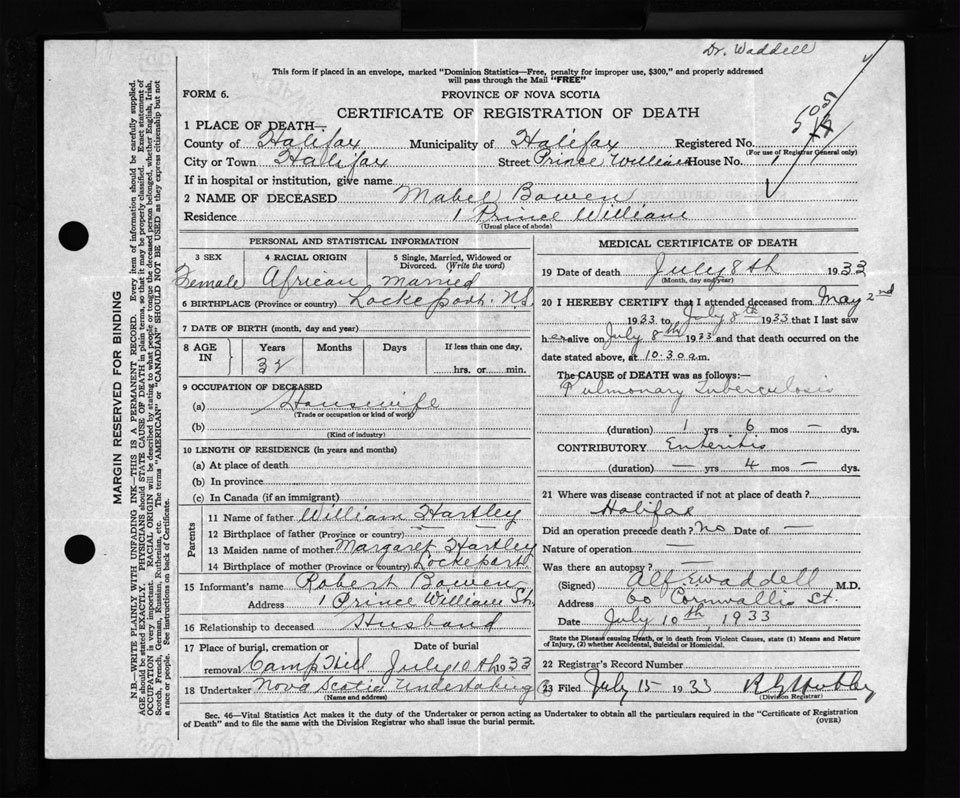 Dr. Waddell
This form if placed in an envelope, marked "Dominion Statistics—Free, penalty for improper use, $300," and properly addressed
will pass through the Mail "FREE"
FORM 6.
PROVINCE OF NOVA SCOTIA
CERTIFICATE OF REGISTRATION OF DEATH
505
1 PLACE OF DEATH—
County of Halifax Municipality of Halifax Registered No.
(For use of Registrar General only)
City or Town Halifax Street Prince William House No. 1
If in hospital or institution, give name
2 NAME OF DECEASED Mabel Bowen
Residence 1 Prince William
(Usual place of abode)
PERSONAL AND STATISTICAL INFORMATION
3 SEX 4 RACIAL ORIGIN 5 Single, Married, Widowed or
Divorced. (Write the word)
Female African Married
6 BIRTHPLACE (Province or country) Lockeport. N.S.
7 DATE OF BIRTH (month, day and year)
8 AGE IN Years Months Days If less than one day,
32 hrs. or min.
9 OCCUPATION OF DECEASED
(a) Housewife
(Trade or occupation or kind of work)
(b)
(Kind of industry)
10 LENGTH OF RESIDENCE (in years and months)
(a) At place of death
(b) In province
(c) In Canada (if an immigrant)
Parents
11 Name of father William Hartley
12 Birthplace of father (Province or country) — —
13 Maiden name of mother Margaret Hartley
14 Birthplace of mother (Province or country) Lockeport
15 Informant's name Robert Bowen
Address 1 Prince William St.
16 Relationship to deceased Husband
17 Place of burial, cremation or Date of burial
removal Camp Hill July 10th 1933
18 Undertaker Nova Scotia Undertaking
(Name and address)
MEDICAL CERTIFICATE OF DEATH
19 Date of death July 8th 1933
(Month, day and year)
20 I HEREBY CERTIFY that I attended deceased from May 2nd
1933 to July 8th 1933 that I last saw
her alive on July 8th 1933 and that death occurred on the
date stated above, at 10.30 a.m.
The CAUSE of DEATH was as follows:—
Pulmonary Tuberculosis
(duration) 1 yrs 6 mos — dys.
CONTRIBUTORY Enteritis
(duration) — yrs 4 mos — dys.
21 Where was disease contracted if not at place of death?
Halifax
Did an operation precede death? No Date of —
Nature of operation —
Was there an autopsy? —
(Signed) Alf. E Waddell M.D.
Address 60 Cornwallis St.
Date July 10th, 1933
State the Disease causing Death, or in death from Violent Causes, state (1) Means and Nature
of Injury, (2) whether Accidental, Suicidal or Homicidal.
22 Registrar's Record Number
23 Filed July 15 1933
(Division Registrar)
Sec. 46—Vital Statistics Act makes it the duty of the Undertaker or person acting as Undertaker to obtain all the particulars required in the "Certificate of Registration
of Death" and to file the same with the Division Registrar who shall issue the burial permit.
(OVER)
MARGIN RESERVED FOR BINDING
N.B.—WRITE PLAINLY WITH UNFADING INK—THIS IS A PERMANENT RECORD. Every item of information should be carefully supplied.
AGE should be stated EXACTLY. PHYSICIANS should STATE CAUSE OF DEATH in plain terms, so that it may be properly classified. Exact statement of
OCCUPATION is very important. RACIAL ORIGIN will be described by stating to what people or tongue the deceased person belonged, whether English, Irish,
Scotch, French, German, Russian, Ruthenian, etc. The terms "AMERICAN" or "CANADIAN" SHOULD NOT BE USED as they express citizenship but not
a race or people. See instructions on back of Certificate.